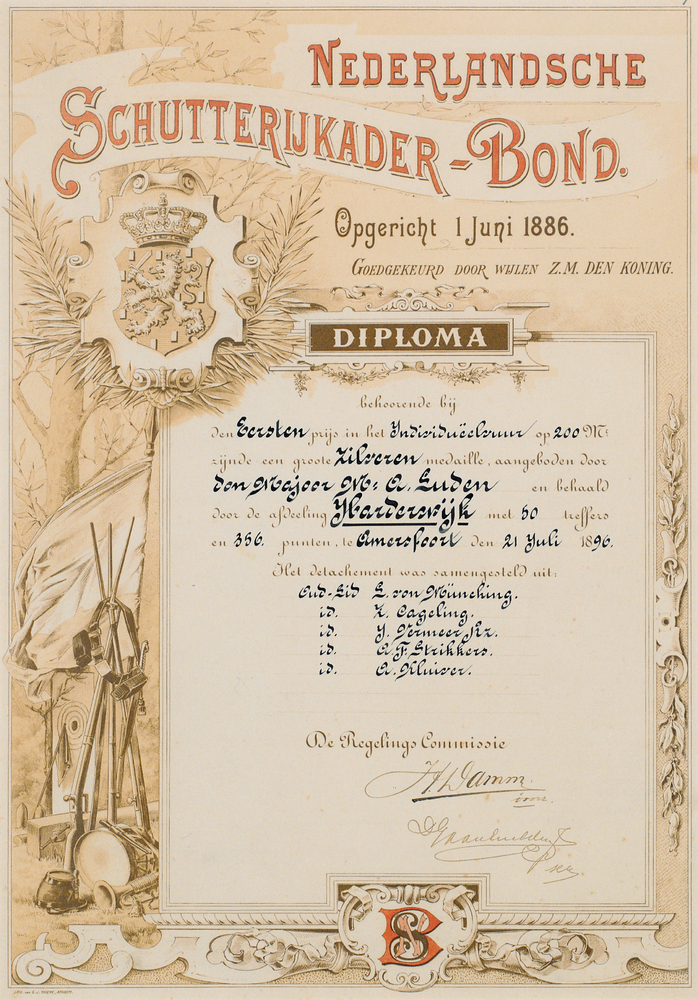 NEDERLANDSCHE
SCHUTTERIJKADER-BOND.
Opgericht 1 Juni 1886.
GOEDGEKEURD DOOR WIJLEN Z.M. DEN KONING.
DIPLOMA
behoorende bij
den Eersten prijs in het Individuëelvuur op 200 M:
zijnde een groote Zilveren medaille, aangeboden door
den Majoor Mr A. Luden en behaald
door de afdeeling Harderwijk met 50 treffers
en 356. punten, te Amersfoort den 21 Juli 1896.
Het detachement was samengesteld uit:
Oud-Lid L. von Münching.
id. K. Cageling.
id. J. Vermeer Jr.
id. A.F. Strikkers.
id. A. Kluiver.
De Regelings Commissie
Damm.
BS